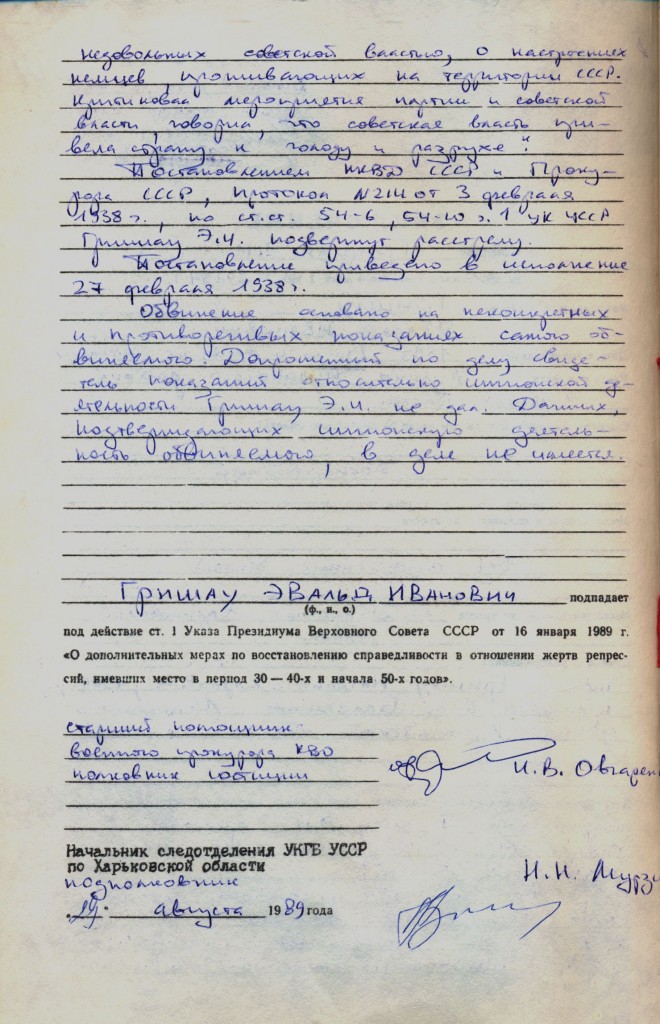 недовольных советской властью, о настроениях
немцев, проживающих на территории СССР.
Критиковал мероприятия партии и советской
власти, говорил, что советская власть при-
вела страну к голоду и разрухе."
Постановлением НКВД СССР и Проку-
рора СССР, протокол N 214 от 3 февраля
1938 г., по ст.ст. 54-6, 54-10 ч. 1 УК УССР
Гришау Э.И. подвергнут расстрелу.
Постановление приведено в исполнение
27 февраля 1938 г.
Обвинение основано на неконкретных
и противоречивых показаниях самого об-
виняемого. Допрошенный по делу свиде-
тель показаний относительно шпионской де-
ятельности Гришау Э.И. не дал. Данных,
подтверждающих шпионскую деятель-
ность обвиняемого, в деле не имеется.
Гришау Эвальд Иванович подпадает
(ф., и., о.)
под действие ст. 1 Указа Президиума Верховного Совета СССР от 16 января 1989 г.
«О дополнительных мерах по восстановлению справедливости в отношении жертв репрес-
сий, имевших место в период 30 — 40-х и начала 50-х годов».
старший помощник
военного прокурора КВО
полковник юстиции И. В.
Начальник следотделения УКГБ УССР
по Харьковской области
подполковник Н. Н.
"29" августа 1989 года